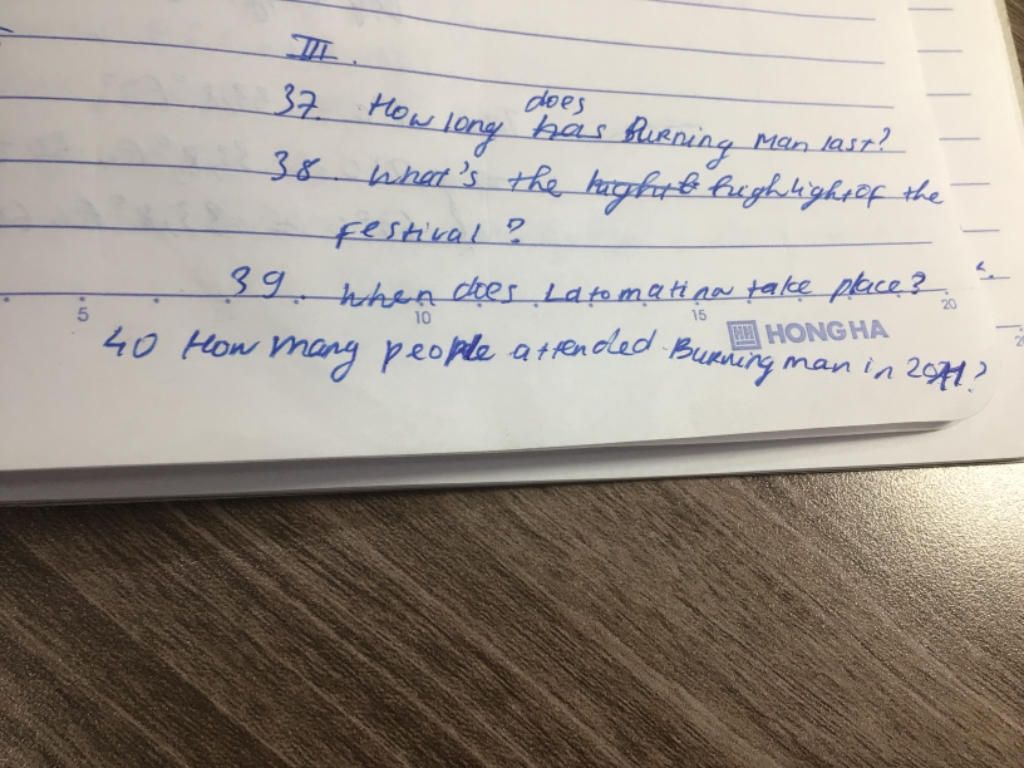 III.
37. How long does has Burning Man last?
38. What's the highlight of the
festival?
39. When does Latomatina take place?
5 10 15 20
HH HONG HA
40 How many people attended Burning man in 2011?